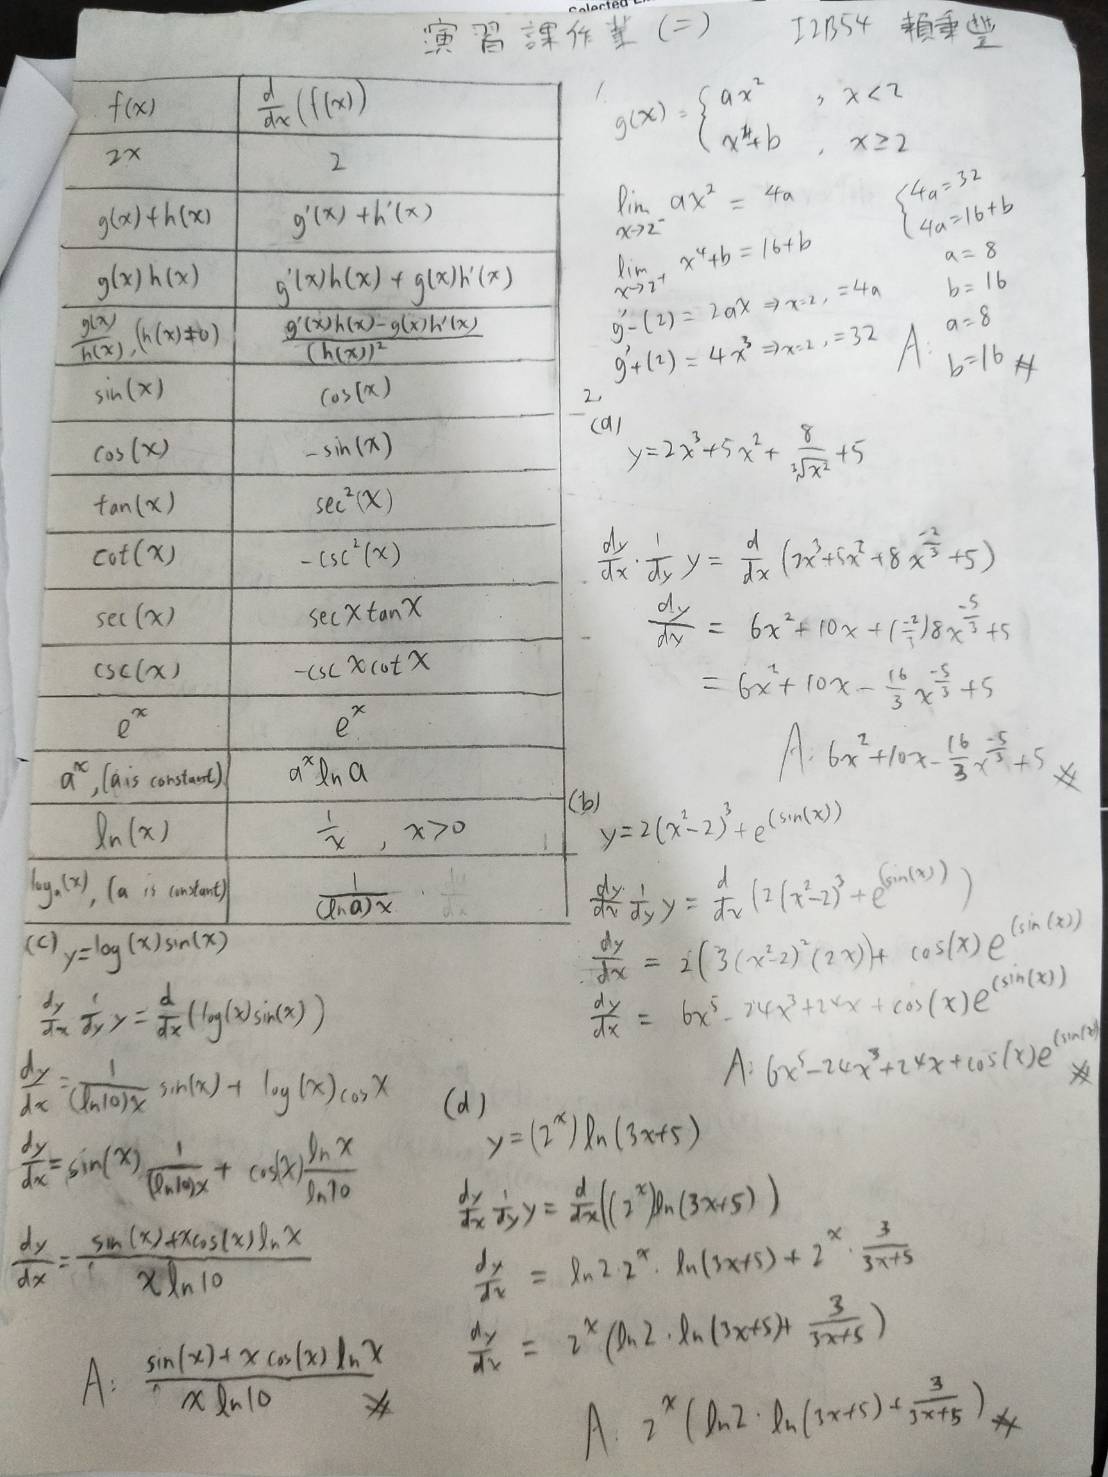 Selected
演習課作業(二) I2B54 賴秉豐
f(x) d/dx (f(x))
2x 2
g(x)+h(x) g'(x)+h'(x)
g(x)h(x) g'(x)h(x)+g(x)h'(x)
g(x)/h(x), (h(x)≠0) g'(x)h(x)-g(x)h'(x)/(h(x))²
sin(x) cos(x)
cos(x) -sin(x)
tan(x) sec²(x)
cot(x) -csc²(x)
sec(x) secxtanx
csc(x) -cscxcotx
eˣ eˣ
aˣ, (a is constant) aˣ ln a
ln(x) 1/x , x>0
logₐ(x), (a is constant) 1/(lna)x
1.
g(x) = { ax² , x<2
x⁴+b , x≥2
lim x→2⁻ ax² = 4a
lim x→2⁺ x⁴+b = 16+b
g'-(2) = 2ax ⇒ x=2, = 4a
g'+(2) = 4x³ ⇒ x=2, = 32
{ 4a=32
4a=16+b
a=8
b=16
A: a=8
b=16 #
2.
(a)
y=2x³+5x²+ 8/³√x² +5
dy/dx · 1/dy y = d/dx (2x³+5x²+8x^(-2/3)+5)
dy/dx = 6x²+10x+(-2/3)8x^(-5/3)+5
= 6x²+10x- 16/3 x^(-5/3)+5
A: 6x²+10x- 16/3 x^(-5/3)+5 #
(b)
y=2(x²-2)³+e^(sin(x))
dy/dx · 1/dy y = d/dx (2(x²-2)³+e^(sin(x)))
dy/dx = 2(3(x²-2)²(2x))+ cos(x)e^(sin(x))
dy/dx = 6x⁵-24x³+24x+cos(x)e^(sin(x))
A: 6x⁵-24x³+24x+cos(x)e^(sin(x) #
(c) y=log(x)sin(x)
dy/dx 1/dy y = d/dx (log(x)sin(x))
dy/dx = 1/(ln10)x sin(x)+ log(x)cosx
dy/dx = sin(x) 1/(ln10)x + cos(x) lnx/ln10
dy/dx = sin(x)+xcos(x)lnx / x ln10
A: sin(x)+xcos(x)lnx / x ln10 #
(d)
y=(2ˣ)ln(3x+5)
dy/dx 1/dy y = d/dx ((2ˣ)ln(3x+5))
dy/dx = ln2·2ˣ·ln(3x+5)+2ˣ· 3/3x+5
dy/dx = 2ˣ(ln2·ln(3x+5)+ 3/3x+5)
A: 2ˣ(ln2·ln(3x+5)+ 3/3x+5) #